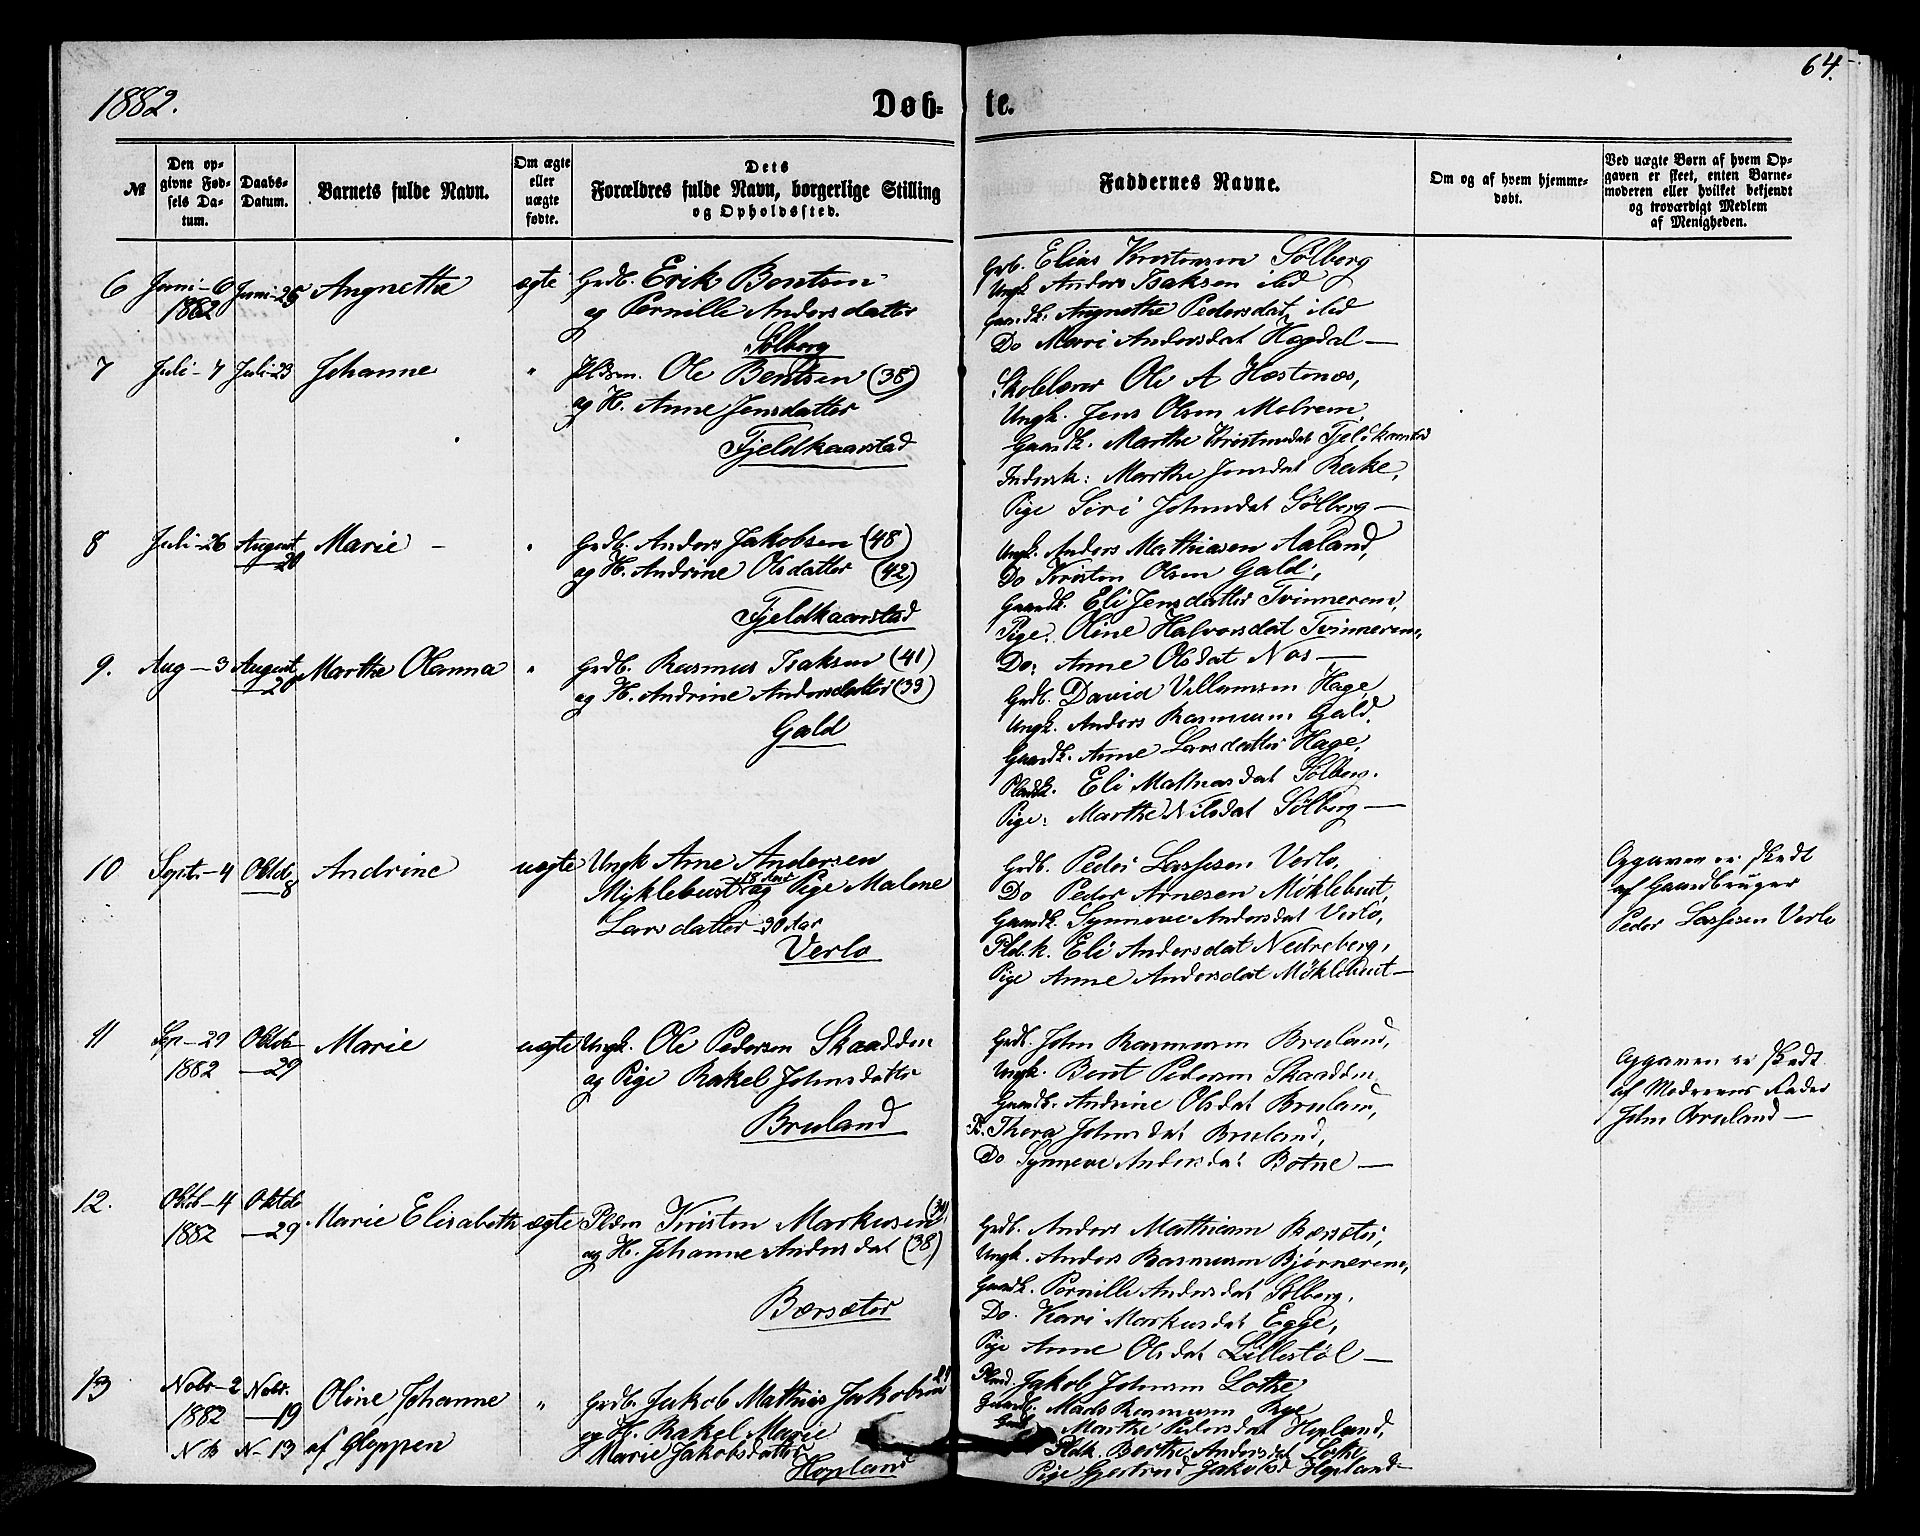 1882.
Døb-
te.
64.
№
Den op-
givne Fød-
sels Da-
tum.
Daabs-
Datum.
Barnets fulde Navn.
Om ægte
eller
uægte
fødte.
Dets
Forældres fulde Navn, borgerlige Stilling
og Opholdssted.
Faddernes Navne.
Om og af hvem hjemme-
døbt.
Ved uægte Børn af hvem Op-
gaven er skeet, enten Barne-
moderen eller hvilket bekjendt
og troværdigt Medlem
af Menigheden.
6 Juni-6 Juni-25 Angnethe ægte Grdb. Erik Bentsen
1882 og Pernille Andersdatter
Sølberg
Grdb. Elias Kristensen Sølberg
Ungk. Anders Isaksen ibd
Gaardk. Angnethe Pedersdat, ibd
Do Mari Andersdat Hegdal —
7 Juli-7 Juli-23 Johanne " Pldsm. Ole Bentsen (38)
og H. Anne Jensdatter
Fjeldkaarstad
Skolelærer Ole A Hestenæs,
Ungk. Jens Olsen Melrem,
Gaardk. Marthe Kristensdat Fjeldkaarstad
Inderstk: Marthe Jensdat Rake,
Pige Siri Johnsdat Sølberg —
8 Juli-26 August 20 Marie — " Grdb. Anders Jakobsen (48)
og H. Andrine Olsdatter (42)
Fjeldkaarstad
Ungk. Anders Mathiasen Aaland,
Do Kristen Olsen Gald,
Gaardk. Eli Jensdatter Tvinnerem,
Pige. Oline Halvorsdat Tvinnerem,
Do: Anne Olsdat Nos —
9. Aug-3 August 20 Marthe Olanna " Grdb. Rasmus Isaksen (41)
og H. Andrine Andersdatter (39)
Gald
Grdb. David Villumsen Hage,
Ungk. Anders Rasmusen Gald,
Gaardk. Anne Larsdatter Hage,
Pladsk. Eli Mathiasdat Sølberg.
Pige: Marthe Nilsdat Sølberg —
10 Septr-4 Oktob 8 Andrine uægte Ungk Arne Andersen
Myklebust 18 Aar og Pige Malene
Larsdatter 30 Aar
Verlo
Grdb. Peder Lassesen Verlo,
Do Peder Arnesen Møklebust,
Gaardk. Synneve Andersdat Verlo,
Pld.k. Eli Andersdat Nedreberg,
Pige Anne Andersdat Møklebust —
Opgaven er skedt
af Gaardbruger
Peder Lassesen Verlo
11 Sep-29 Oktob Marie uægte Ungk. Ole Pedersen Skaadden
1882 —29 og Pige Rakel Johnsdatter
Bruland
Grdb. John Rasmusen Bruland,
Ungk. Bent Pedersen Skaadden,
Gaardk. Andrine Olsdat Bruland,
P. Thora Johnsdat Bruland,
Do Synneve Andersdat Botne —
Opgaven er skedt
af Moderens Fader
John Bruland —
12. Oktb-4 Oktob Marie Elisabeth ægte Pladsm Kristen Markusen
1882 —29 og H. Johanne Andersdat (38)
Børsæter
Grdb. Anders Mathiasen Børsæter,
Ungk. Anders Rasmusen Bjørnerem,
Gaardk. Pernille Andersdat Sølberg,
Do. Kari Markusdat Egge,
Pige Anne Olsdat Lillestøl —
13 Nobr-2 Nobr. Oline Johanne " Grdb. Jakob Mathias Jakobsen
1882 —19 og H. Rakel Marie
NB N-13 af Gloppen Marie Jakobsdatter
Hopland
Plsd. Jakob Johnsen Lothe,
Gaardb. Mads Rasmusen Rye
Marthe Pedersdat Hopland,
Pldk. Berthe Andersdat Lothe,
Pige Gjertrud Jakobsd Hopland —